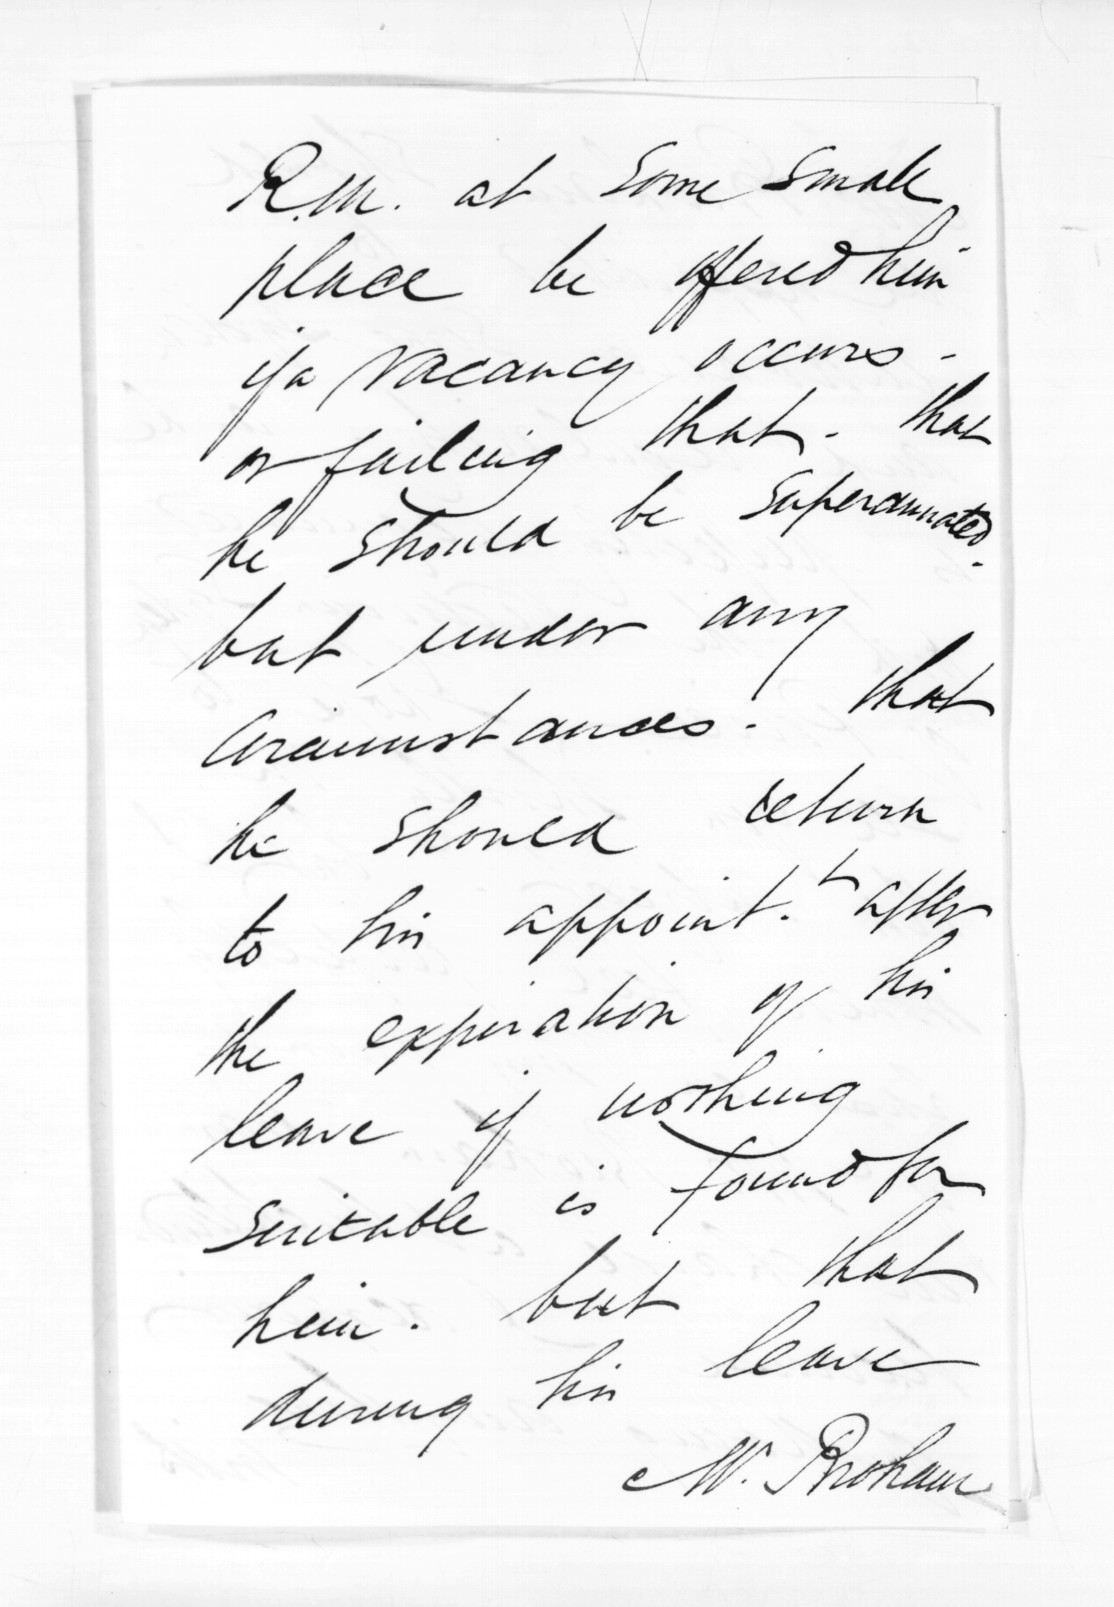 R.M. at some small
place be offered him
if a vacancy occurs -
or failing that - that
he should be superannuated -
but under any
circumstances - that
he should return
to his appoint.t after
the expiration of his
leave if nothing
suitable is found for
him. but that
during his leave
Mr. Broham